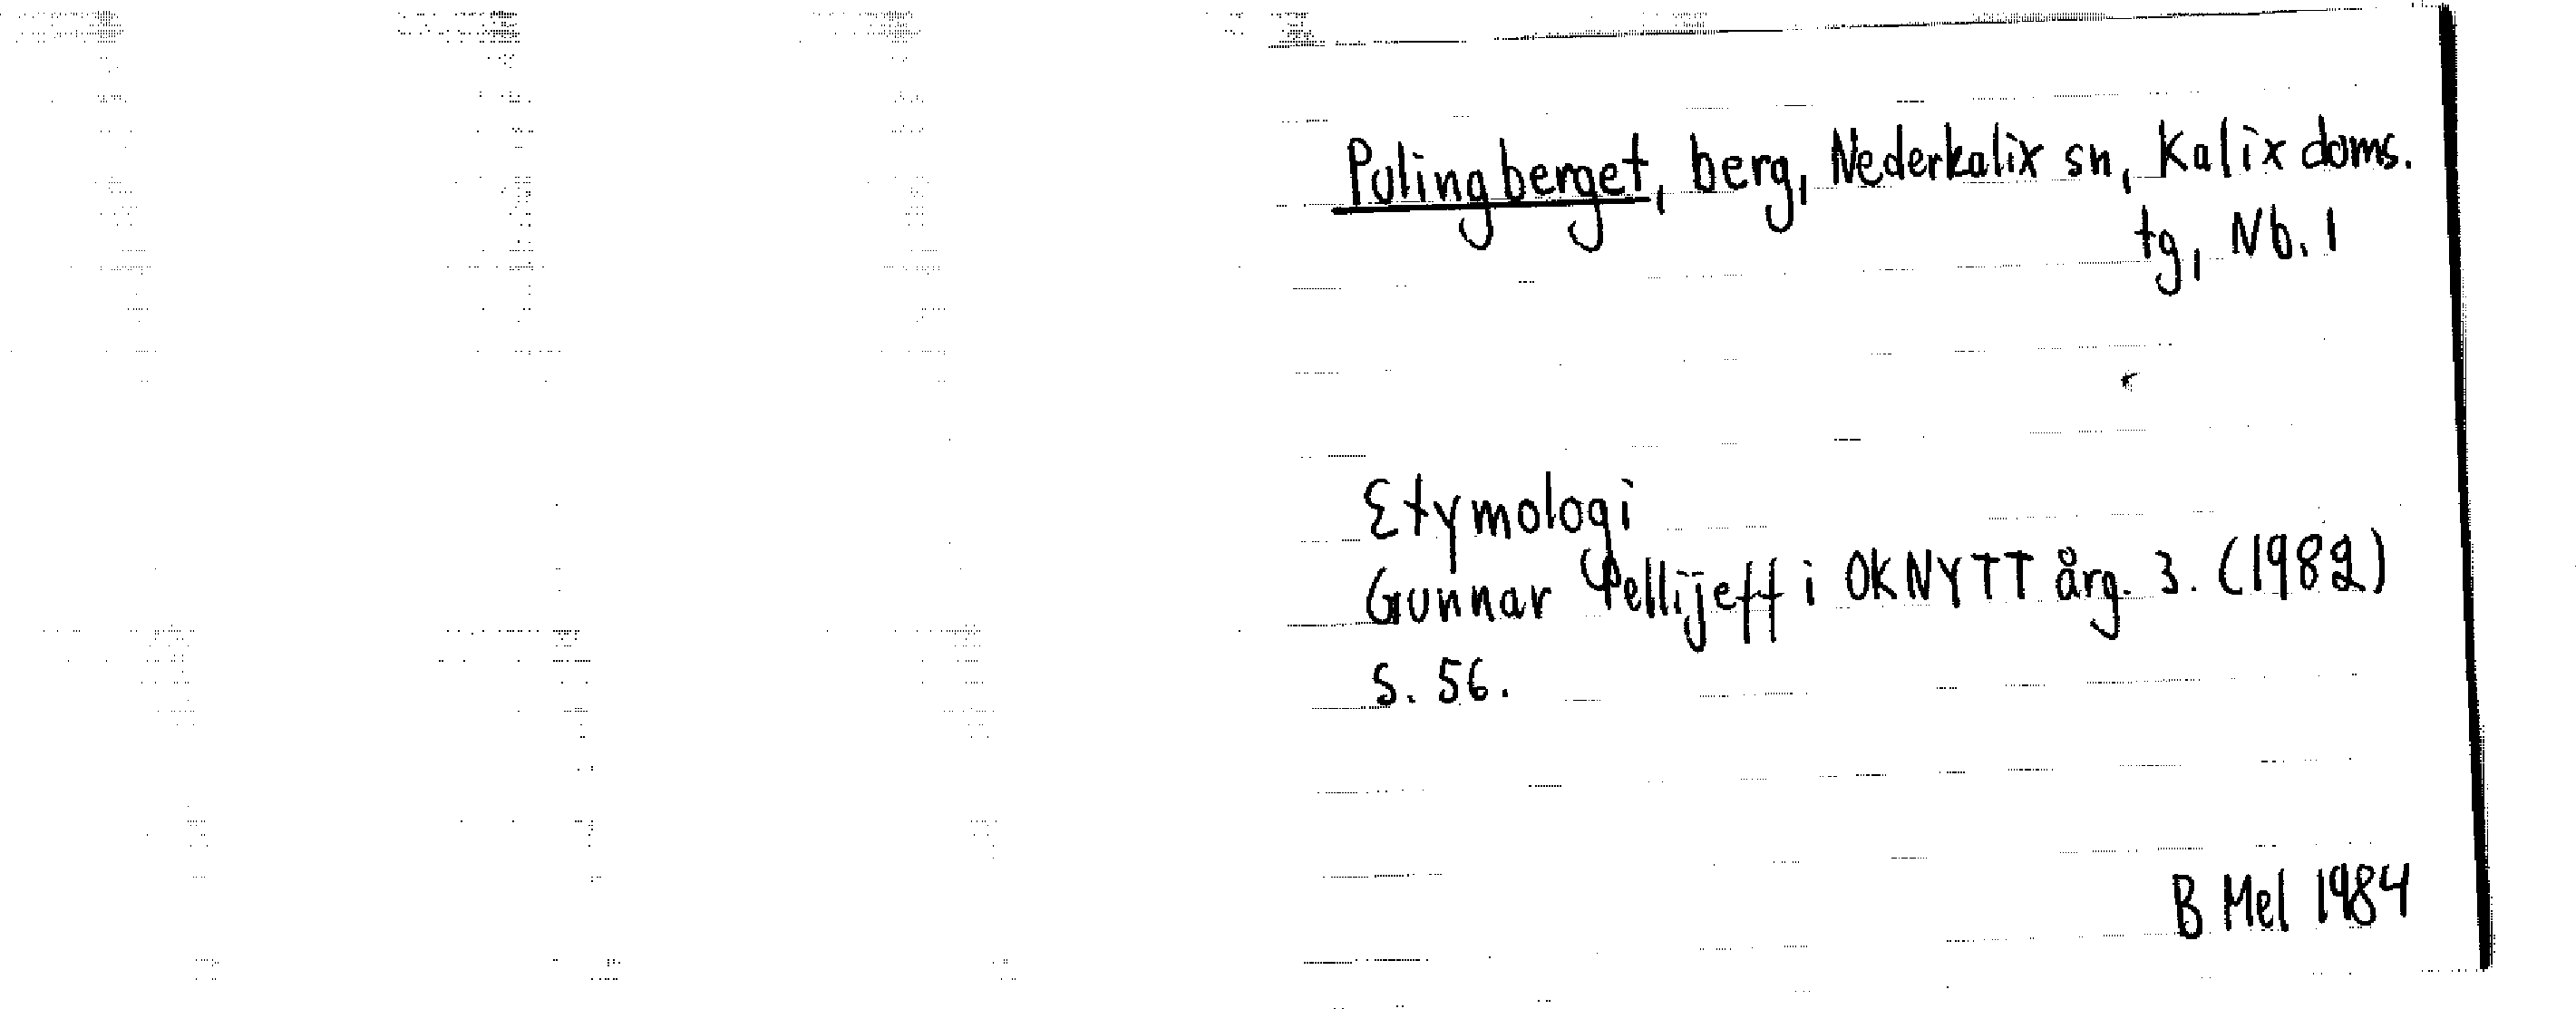 Pulingberget, berg, Nederkalix sn, Kalix doms.
tg, Nb. 1
Etymologi
Gunnar Pellijeff i OKNYTT årg. 3. (1982)
s. 56.
B Mel 1984